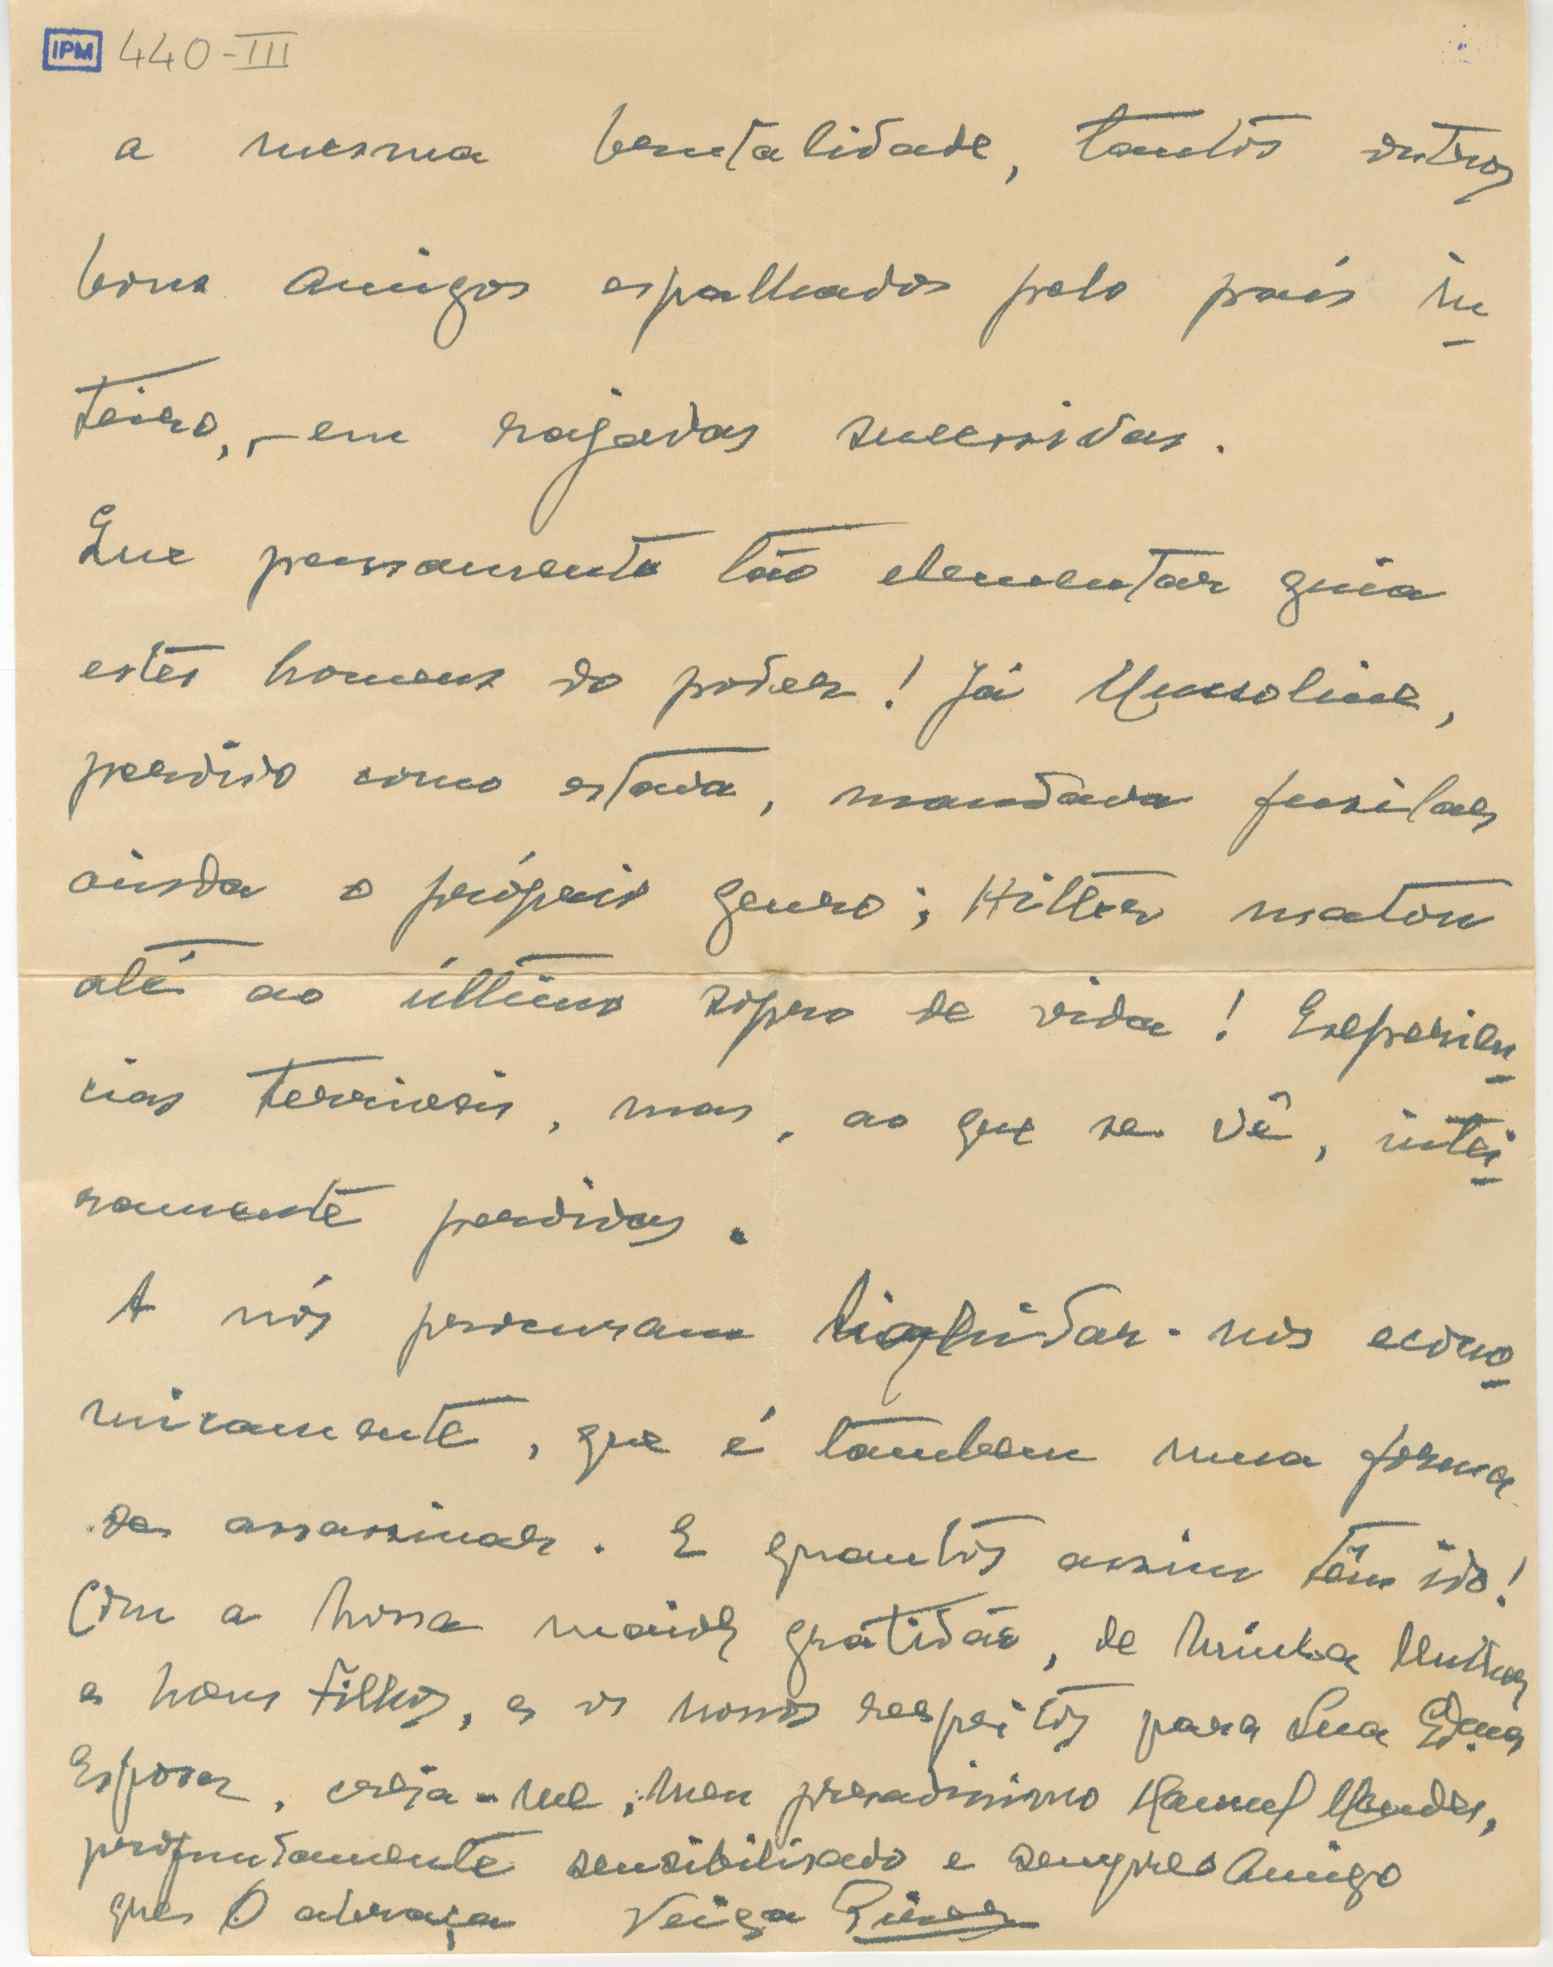 IPM 440-III
a mesma brutalidade, tantos outros
bons amigos espalhados pelo país in
teiro, - em rajadas sucessivas.
Que pensamento tão elementar guia
estes homens do poder! Já Mussoline,
perdido como estava, mandava fusilar
ainda o próprio genro; Hitler matou
até ao último sopro de vida! Experien
cias terriveis, mas, ao que se vê, intei
ramente perdidas.
A nós procuram liquidar-nos econo
micamente, que é tambem uma forma
de assassinar. E quantos assim têm ido!
Com a nossa maior gratidão, de minha Mulher
e meus Filhos, e os nossos respeitos para Sua Exma
Esposa, creia-me, meu presadissimo Manuel Mendes,
profundamente sensibilisado e sempre Amigo
que O abraça Veiga Pires